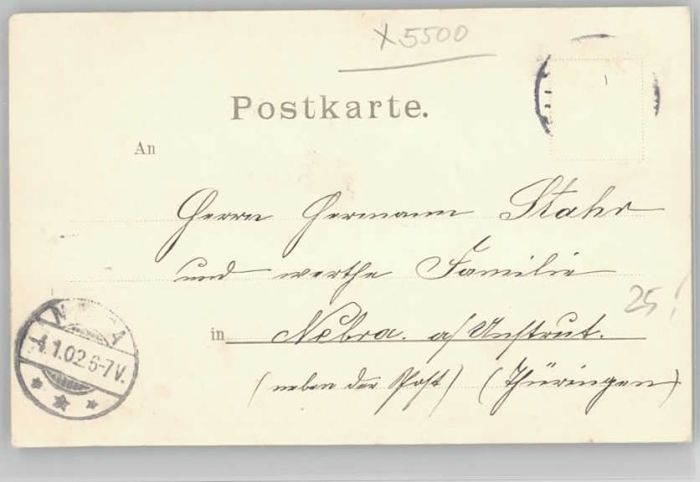 x 5500
Postkarte.
An
Herrn Hermann Stahr
und werthe Familie
25!
in Nebra. a/ Unstrut.
(neben der Post) (Thüringen)
N A
4.1.02.6-7V.